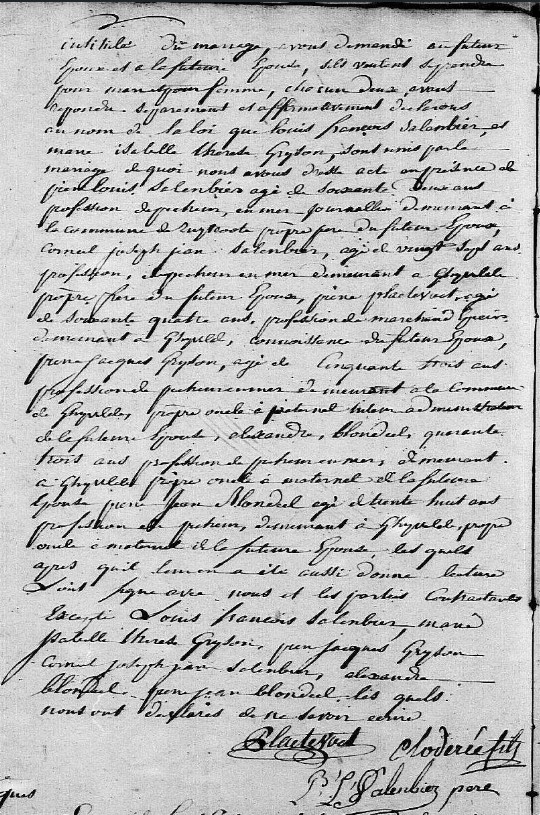 intitulé du mariage, avous demandé au futur
Epoux et a la future Epouse, sils veulent se prendre
pour mari et pour femme, chacun deux, ayant
repondu separement et affirmativement declarons
au nom de la loi que Louis françois Salembier, et
marie isabelle therese Gryson, sont unis par le
mariage de quoi nous avons dressé acte en presence de
pierre Louis, Salembier agé de soixante deux ans
profession de pecheur, en mer journallier demeurant à
la commune de Zuydcoote propre pere du futur Epoux,
Cornil joseph jean Salembier, agé de vingt sept ans
profession, de pecheur en mer demeurant a Ghyvelde
propre frere du futur Epoux, pierre plaetevoet, agé
de soixante quatre ans, profession de marchand Epicier
demeurant a Ghyvelde, connoissance du futur Epoux,
pierre jacques Gryson, agé de Cinquante trois ans
profession de pecheur en mer demeurant a la Commune
de Ghyvelde, propre oncle à paternel tuteur administrateur
de la future Epouse, alexandre, blondeel, quarante
trois ans profession de pecheur en mer, demeurant
a Ghyvelde propre oncle à maternel de la future
Epouse pierre Jean Blondeel agé de trente huit ans
profession de pecheur, demeurant à Ghyvelde, propre
oncle à maternel de la future Epouse, les quels
apres quil leur en a été aussi donné lecture
ont signé avec nous et les parties Contractantes
Excepté Louis françois Salembier, marie
isabelle therese Gryson, pierre jacques Gryson
Cornil joseph jean Salembier, alexandre
blondeel pierre jean blondeel les quels
nous ont declarés de ne savoir ecrire
Plaetevoet
fils
P: L: Salembier pere